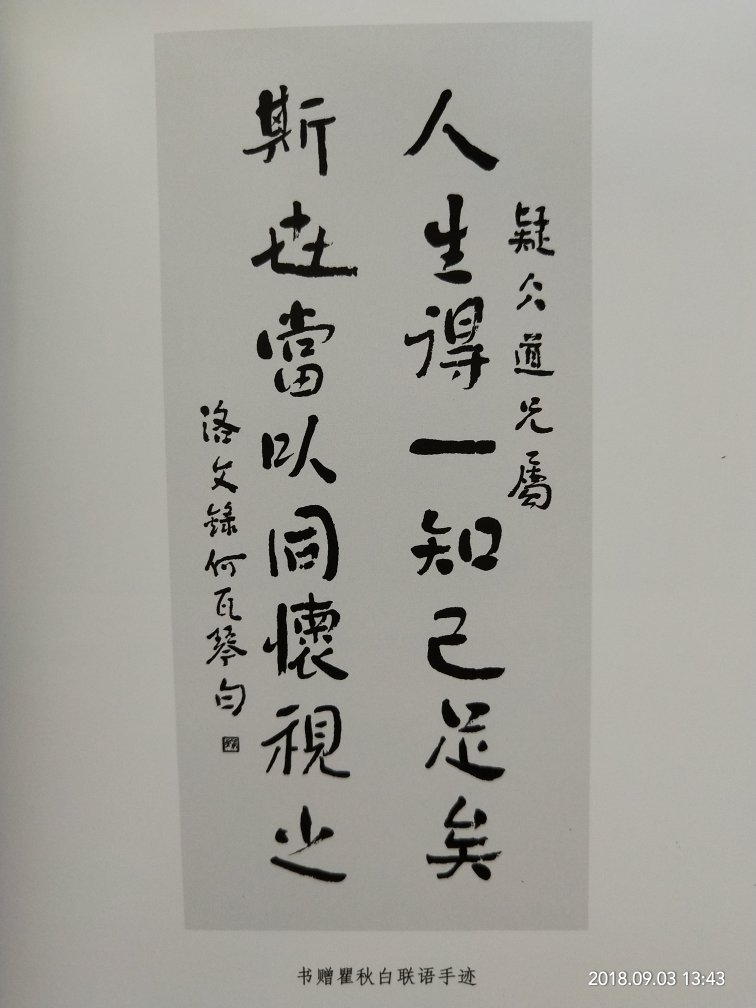 疑仌道兄屬
人生得一知己足矣
斯世當以同懷視之
洛文錄何瓦琴句
书赠瞿秋白联语手迹
2018.09.03 13:43